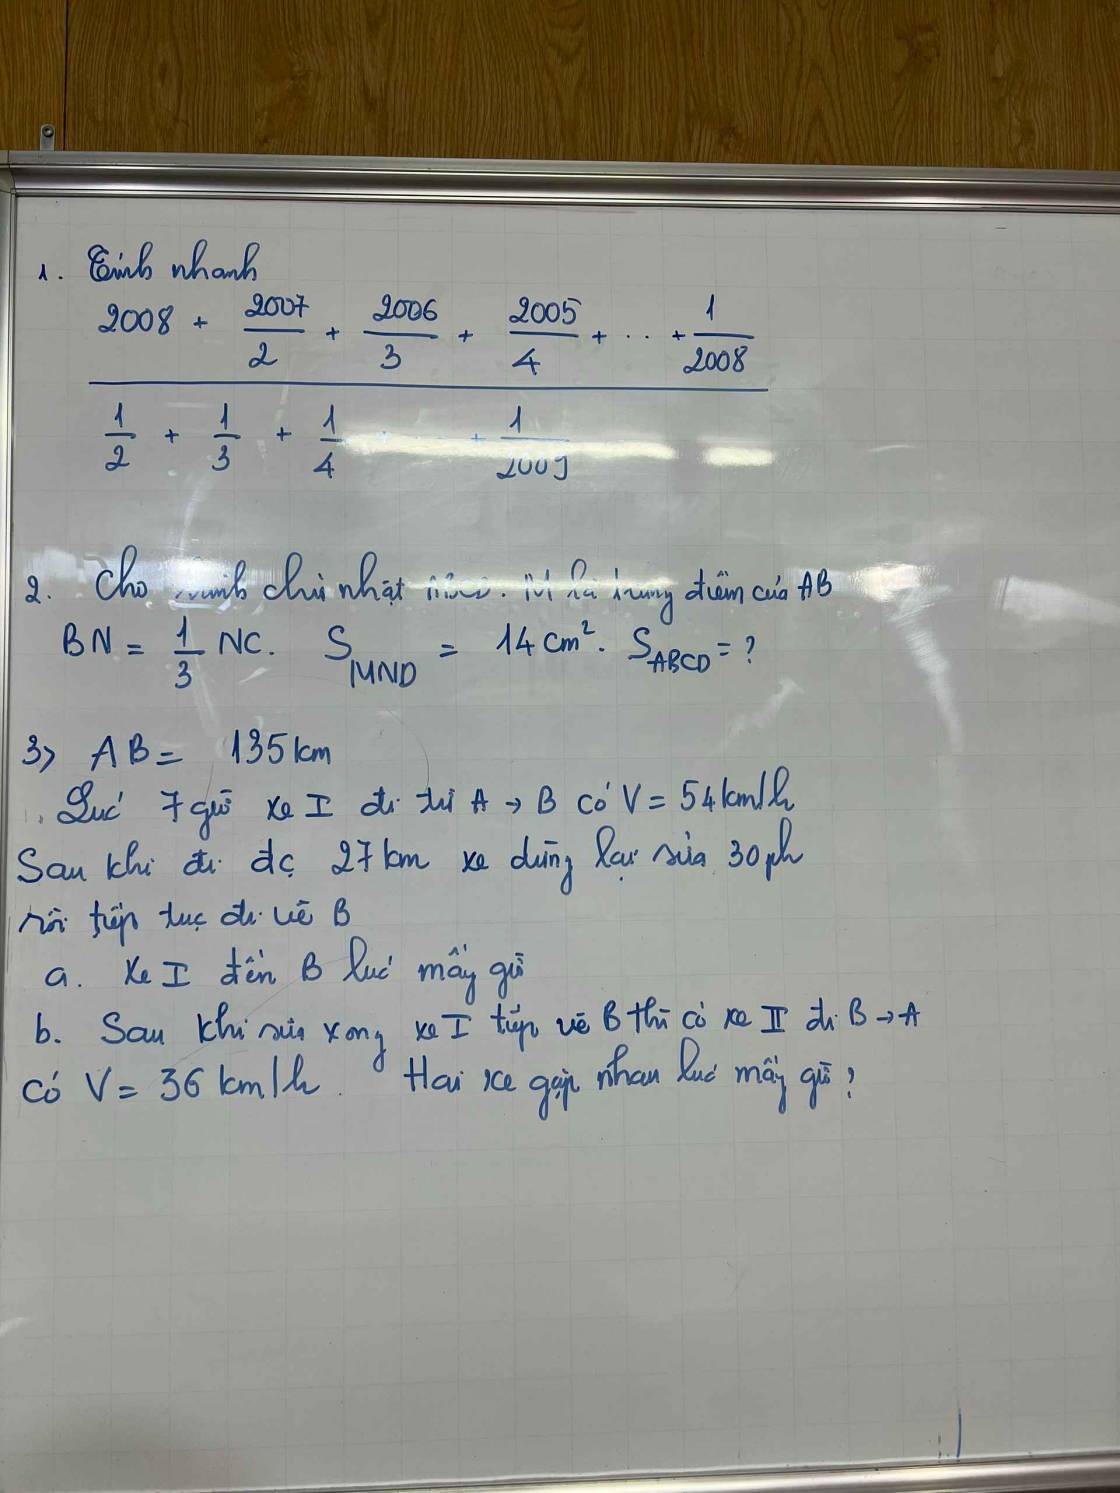 1. Tính nhanh
2008 + 2007/2 + 2006/3 + 2005/4 + .. + 1/2008
1/2 + 1/3 + 1/4 + 1/2009
2. Cho hình chữ nhật ABCD. M là trung điểm của AB
BN = 1/3 NC. S MND = 14 cm². S ABCD = ?
3> AB = 135km
Lúc 7 giờ xe I đi từ A → B có V = 54km/h
Sau khi đi đc 27km xe dừng lại sửa 30ph
rồi tiếp tục đi về B
a. Xe I đến B lúc mấy giờ
b. Sau khi sửa xong xe I tiếp về B thì có xe II đi B → A
có V = 36 km/h. Hai xe gặp nhau lúc mấy giờ?